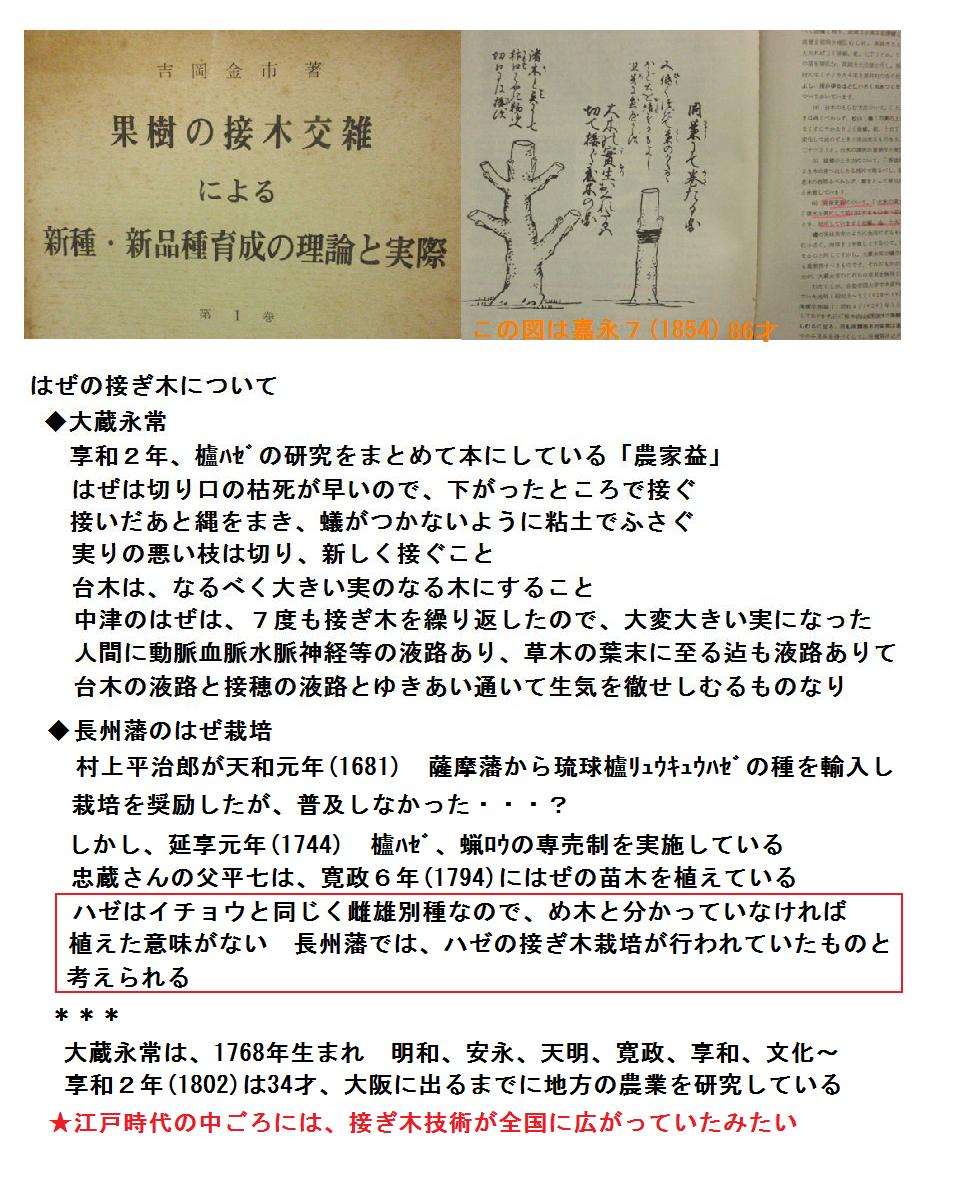 吉岡金市著
果樹の接木交雑
による
新種・新品種育成の理論と実際
第Ⅰ巻
この図は嘉永7(1854) 86才
はぜの接ぎ木について
◆大蔵永常
享和２年、櫨ﾊｾﾞの研究をまとめて本にしている「農家益」
はぜは切り口の枯死が早いので、下がったところで接ぐ
接いだあと縄をまき、蟻がつかないように粘土でふさぐ
実りの悪い枝は切り、新しく接ぐこと
台木は、なるべく大きい実のなる木にすること
中津のはぜは、７度も接ぎ木を繰り返したので、大変大きい実になった
人間に動脈血脈水脈神経等の液路あり、草木の葉末に至る迠も液路ありて
台木の液路と接穂の液路とゆきあい通いて生気を徹せしむるものなり
◆長州藩のはぜ栽培
村上平治郎が天和元年(1681)　薩摩藩から琉球櫨ﾘｭｳｷｭｳﾊｾﾞの種を輸入し
栽培を奨励したが、普及しなかった・・・？
しかし、延享元年(1744)　櫨ﾊｾﾞ、蝋ﾛｳの専売制を実施している
忠蔵さんの父平七は、寛政６年(1794)にはぜの苗木を植えている
ハゼはイチョウと同じく雌雄別種なので、め木と分かっていなければ
植えた意味がない　長州藩では、ハゼの接ぎ木栽培が行われていたものと
考えられる
＊＊＊
大蔵永常は、1768年生まれ　明和、安永、天明、寛政、享和、文化～
享和２年(1802)は34才、大阪に出るまでに地方の農業を研究している
★江戸時代の中ごろには、接ぎ木技術が全国に広がっていたみたい